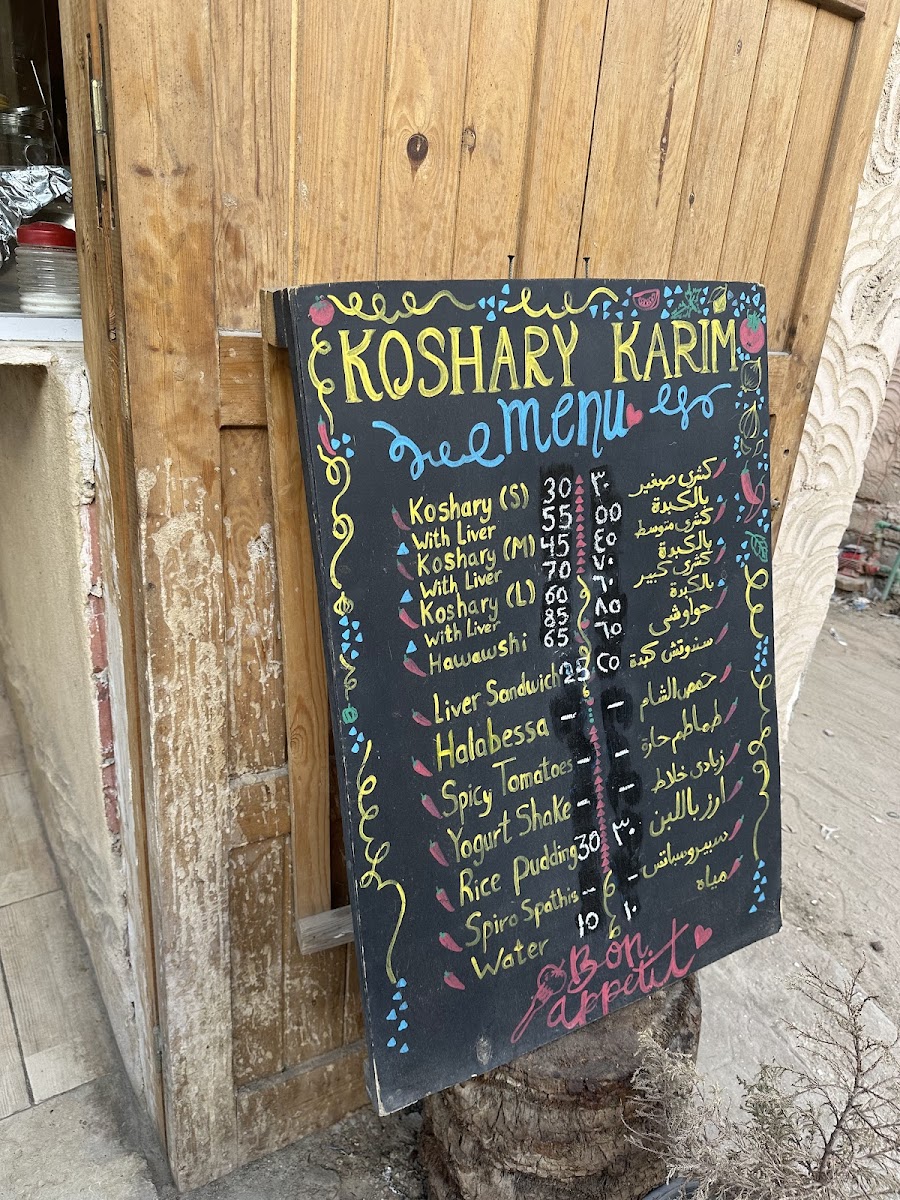 KOSHARY KARIM
menu
Koshary (S) 30 ٣٠ كشرى صغير
With Liver 55 ٥٥ بالكبدة
Koshary (M) 45 ٤٥ كشرى متوسط
With Liver 70 ٧٠ بالكبدة
Koshary (L) 60 ٦٠ كشرى كبير
With Liver 85 ٨٥ بالكبدة
Hawawshi 65 ٦٥ حواوشى
Liver Sandwich 25 ٢٥ سندوتش كبدة
Halabessa - - حمص الشام
Spicy Tomatoes - - طماطم حارة
Yogurt Shake - - زبادى خلاط
Rice Pudding 30 ٣٠ أرز باللبن
Spiro Spathis - - سبيروسباتس
Water 10 ١٠ مياه
Bon
appetit